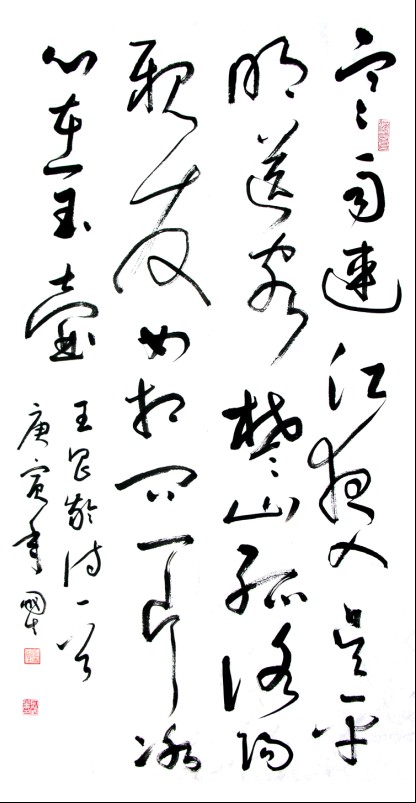 寒雨連江夜入吳平
明送客楚山孤洛陽
親友如相問一片冰
心在玉壺
王昌齡詩一首
庚寅年國